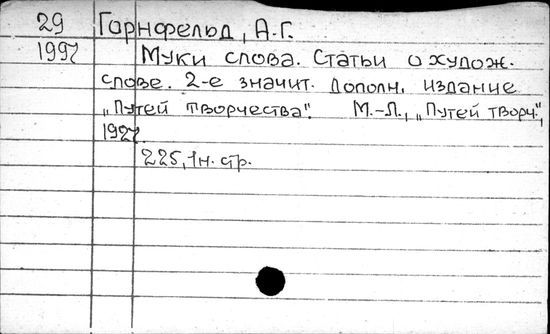 29 Горнфельд, А.Г.
1997 Муки слова. Статьи о худож.
слове. 2-е значит. дополн. издание
„Путей творчества". М.-Л., „Путей творч.",
1927.
225, 1н. стр.